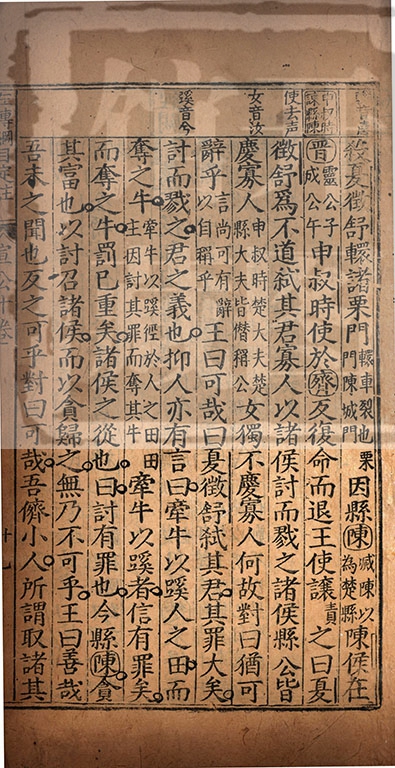 殺夏徵舒轘諸栗門轘車裂也栗門陳城門因縣陳滅陳以為楚縣陳侯在
申叔時諫縣陳
晉靈公子成公午申叔時使於齊反復命而退王使讓責之曰夏
使去声
徵舒為不道弒其君寡人以諸侯討而戮之諸侯縣公皆
女音汝
慶寡人申叔時楚大夫楚縣大夫皆僭稱公女獨不慶寡人何故對曰猶可
辭乎言尚可有辭以自稱乎王曰可哉曰夏徵舒弒其君其罪大矣
蹊音兮
討而戮之君之義也抑人亦有言曰牽牛以蹊人之田而
奪之牛牽牛以蹊徑於人之田田主因討其罪而奪其牛牽牛以蹊者信有罪矣
而奪之牛罰已重矣諸侯之從也曰討有罪也今縣陳貪
其富也以討召諸侯而以貪歸之無乃不可乎王曰善哉
吾未之聞也反之可乎對曰可哉吾儕小人所謂取諸其
宣公